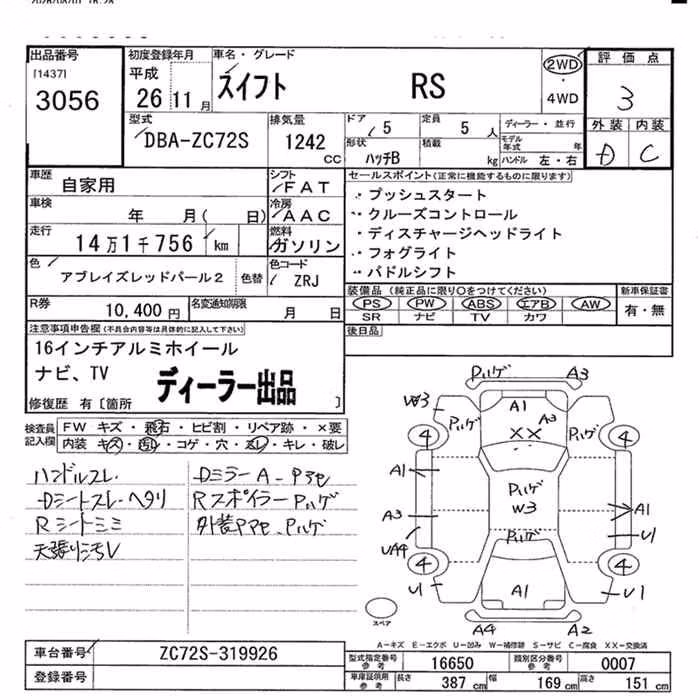 出品番号
[1437]
3056
初度登録年月
平成
26 11 月
車名・グレード
スイフト RS
2WD
・
4WD
評価点
3
外装 内装
D C
型式
DBA-ZC72S
排気量
1242 CC
ドア
5
定員
5 人
形状
ハッチB
積載
kg
ディーラー・並行
モデル年式 年
ハンドル 左・右
車歴
自家用
シフト
FAT
車検
年 月( 日)
冷房
AAC
走行
14万1千756 km
燃料
ガソリン
色
アブレイズレッドパール2
色替
色コード
ZRJ
R券
10,400円
名変通知期限
月 日
セールスポイント(正常に機能するものに限ります)
・プッシュスタート
・クルーズコントロール
・ディスチャージヘッドライト
・フォグライト
・パドルシフト
装備品 (純正品に限り○をつけてください)
PS PW ABS エアB AW
SR ナビ TV カワ
新車保証書
有・無
後日品
注意事項申告欄(不具合内容等は具体的に記入して下さい)
16インチアルミホイール
ナビ、TV
ディーラー出品
修復歴 有〔箇所 〕
検査員記入欄
FW キズ・飛石・ヒビ割・リペア跡・×要
内装 キズ・汚レ・コゲ・穴・スレ・キレ・破レ
ハンドルスレ
Dシートスレ・ヘタリ
Rシートシミ
天張り汚レ
DミラーA
Rスポイラーハゲ
外装 ハゲ
ハゲ A3
W3 A1 A3
ハゲ ×× ハゲ
4 4
A1
ハゲ
W3
A3 A1
ハゲ
UA4 U1
4 4
U1 A1 U1
A4 A2
スペア
A-キズ E-エクボ U-凹み W-補修跡 S-サビ C-腐食 XX-交換済
車台番号
ZC72S-319926
登録番号
型式指定番号
参考
16650
類別区分番号
参考
0007
車庫証明用
参考
長さ
387 cm
幅
169 cm
高さ
151 cm